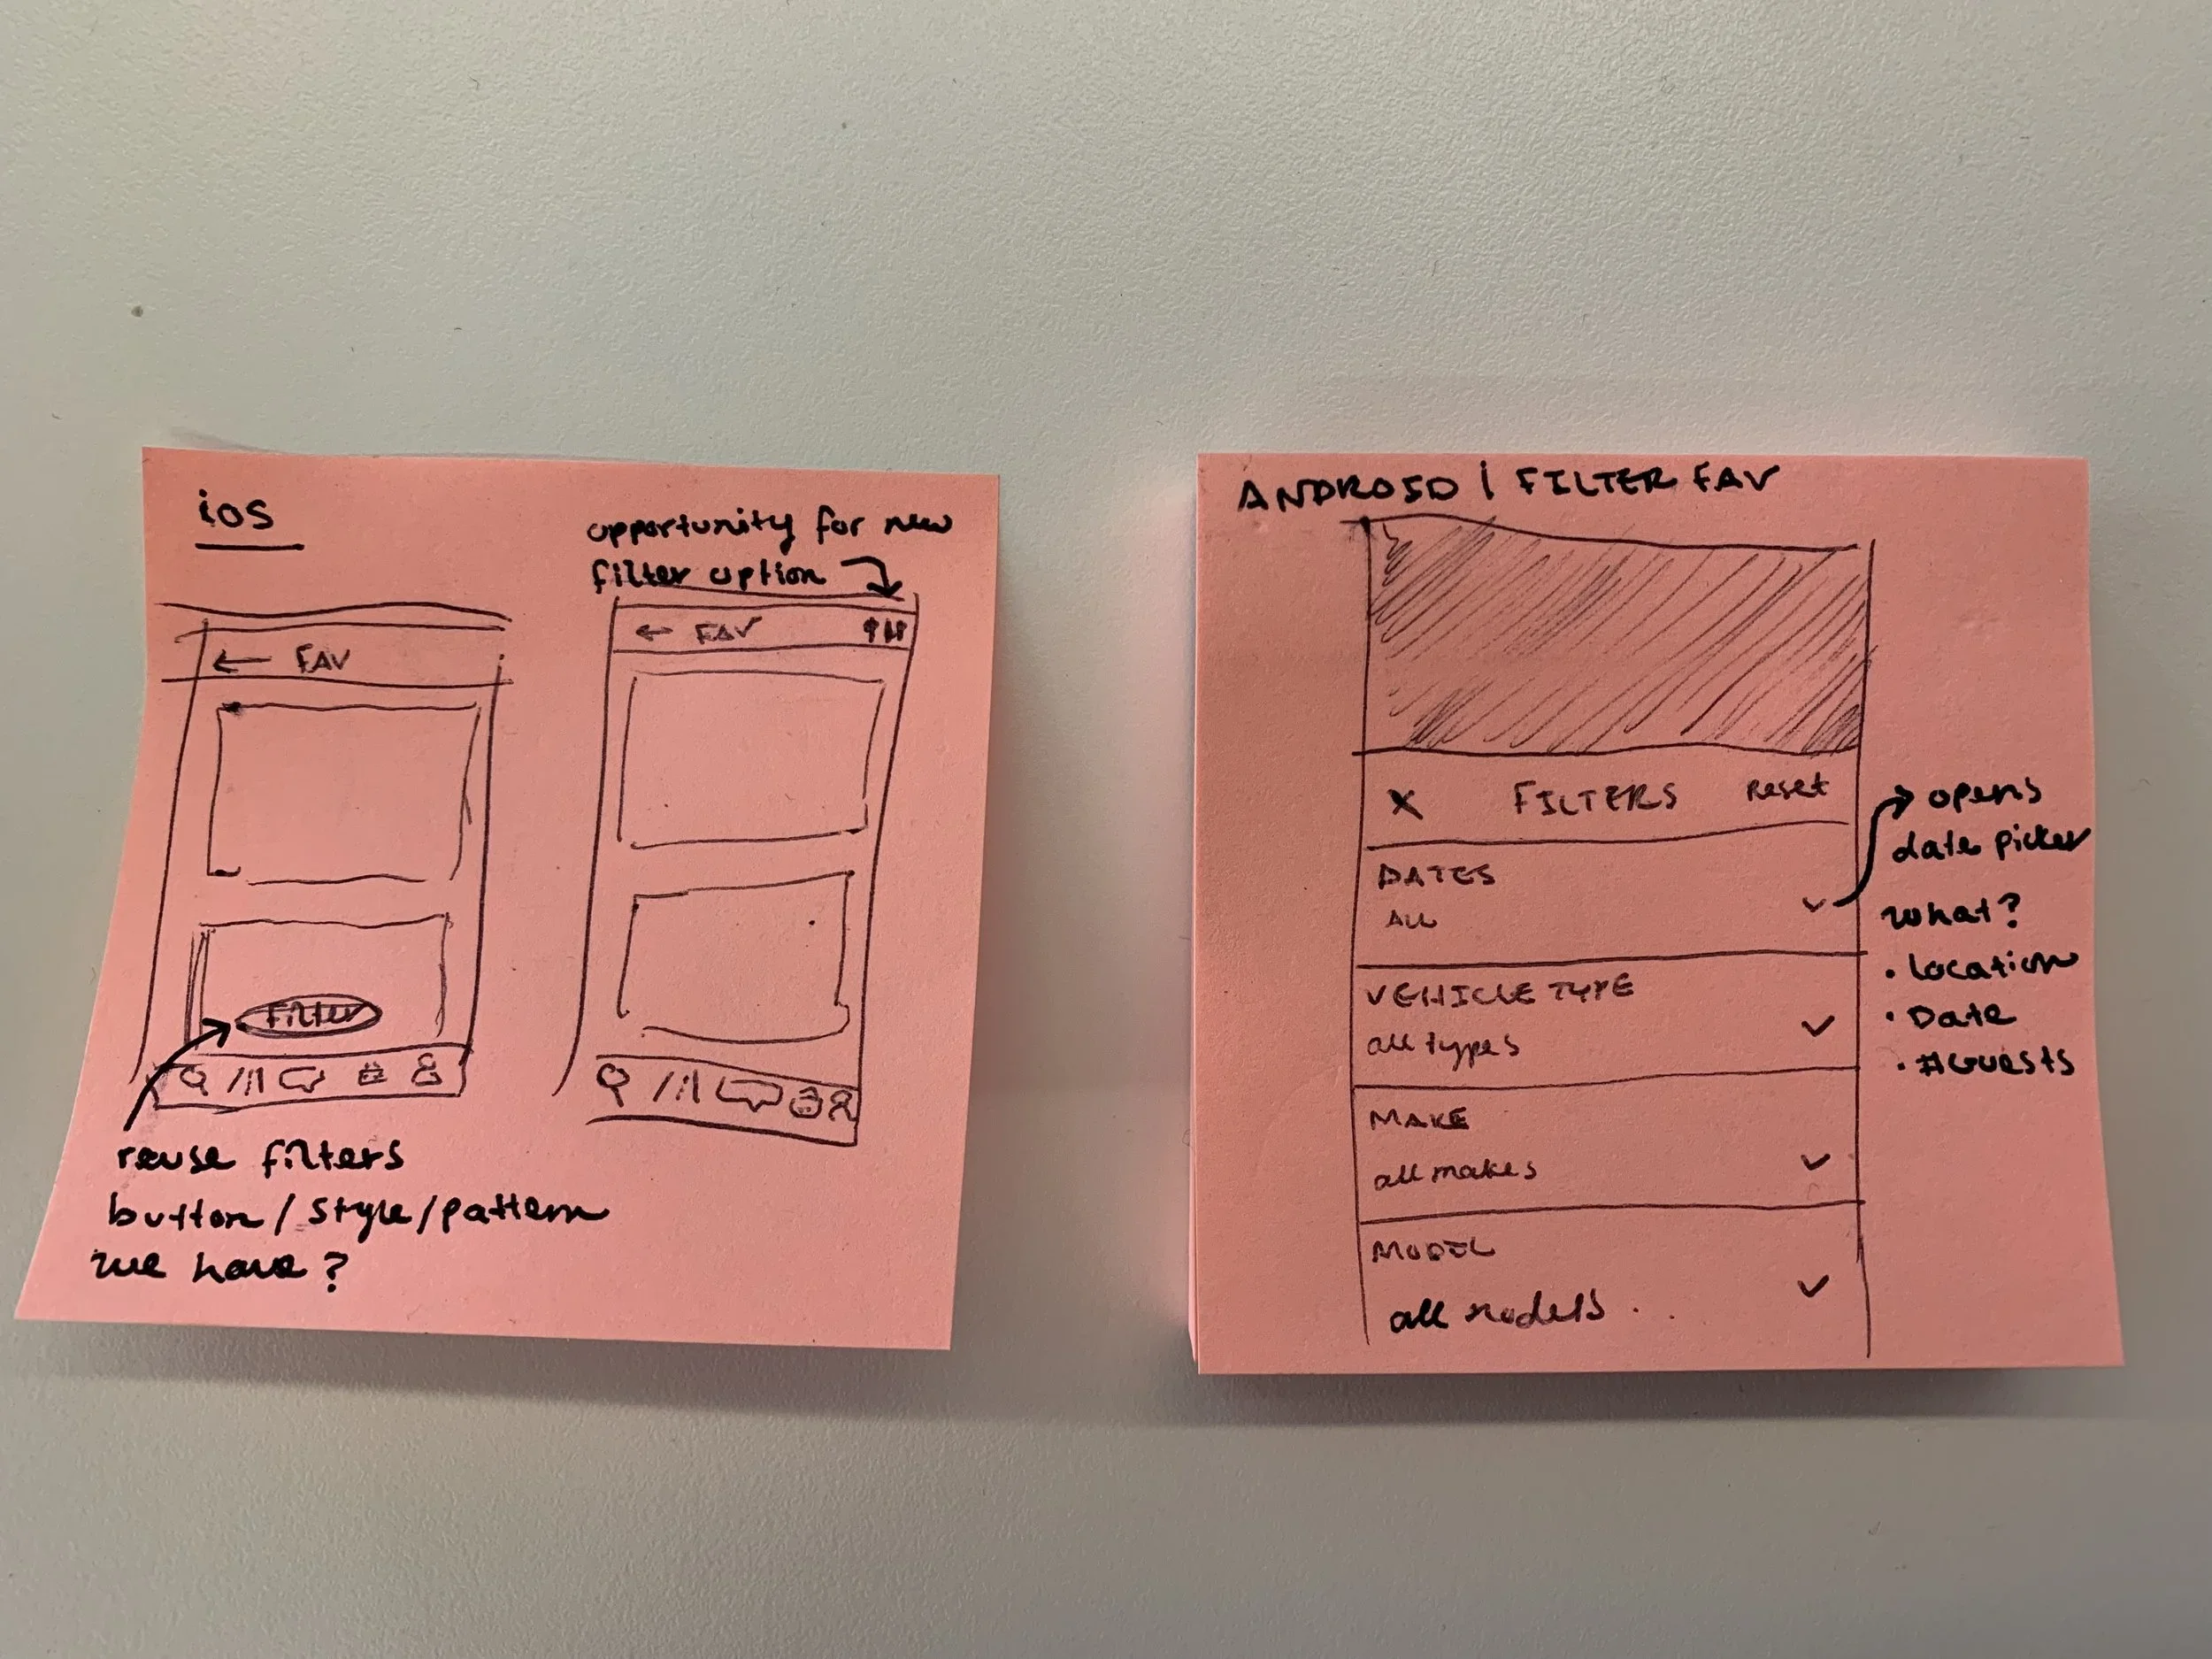 ios
opportunity for new
filter option
← FAV
Filter
reuse filters
button/style/pattern
we have?
← FAV
ANDROID | FILTER FAV
X FILTERS Reset
DATES
ALL
VEHICLE TYPE
all types
MAKE
all makes
MODEL
all models
opens
date picker
what?
• Location
• Date
• #Guests